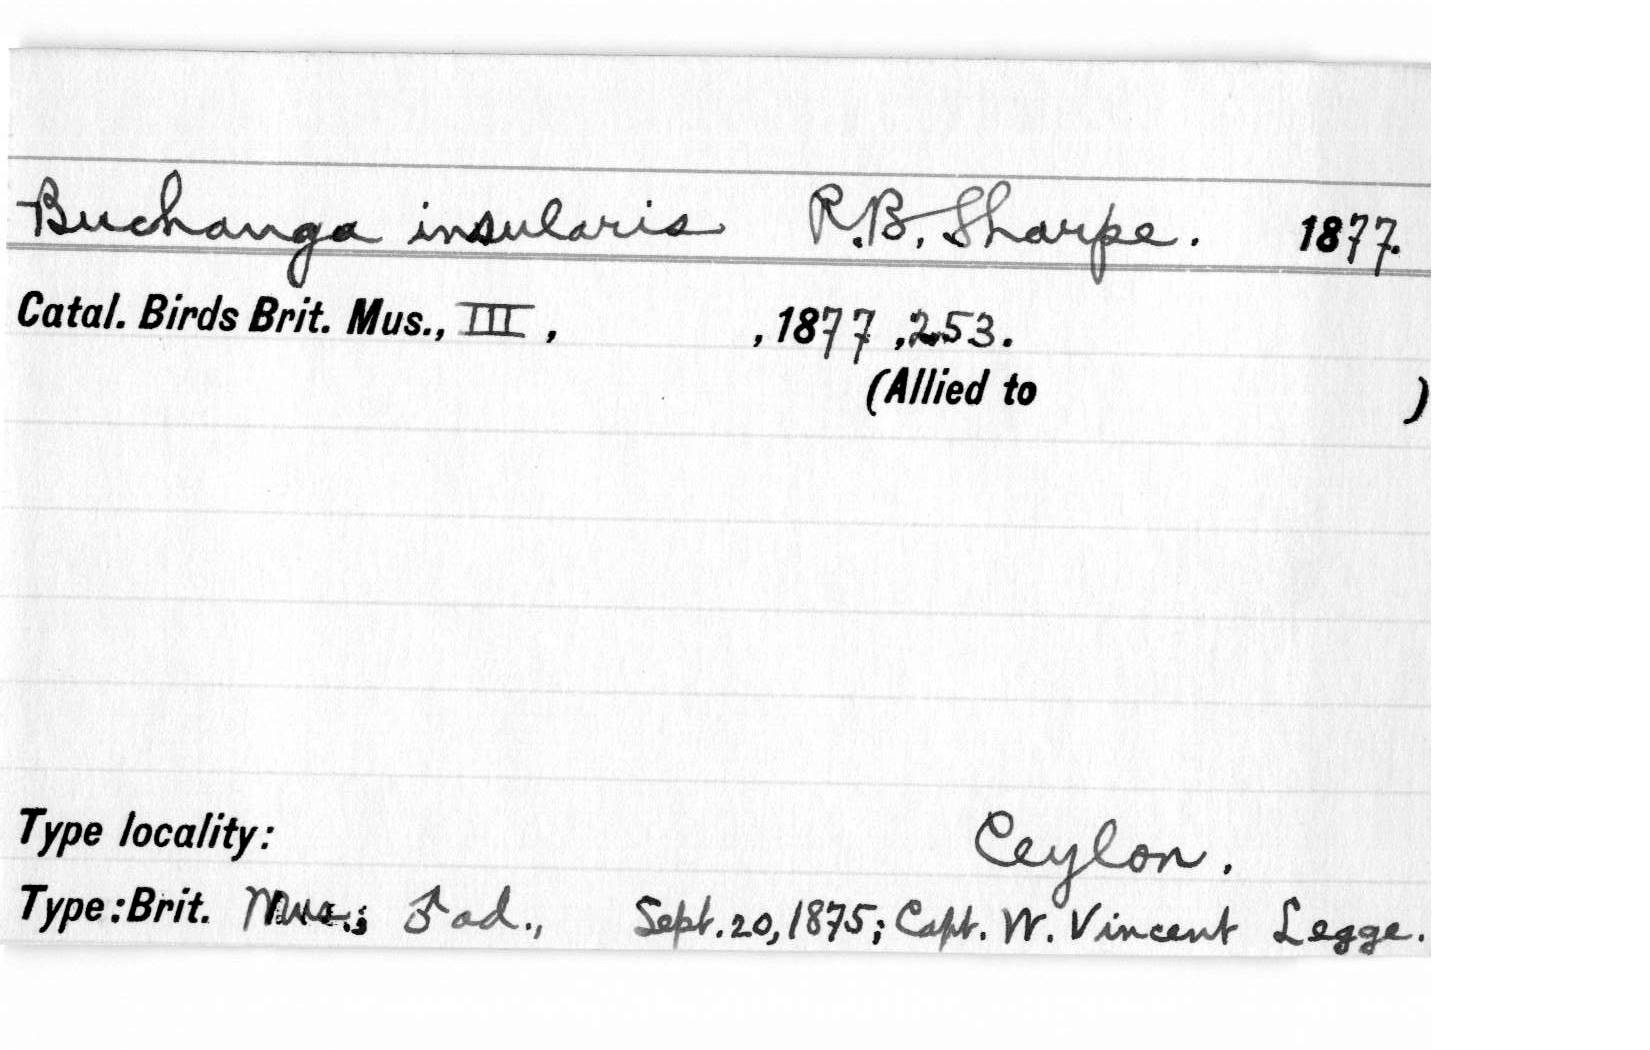 Buchanga insularis R.B. Sharpe. 1877.
Catal. Birds Brit. Mus., III, , 1877, 253.
(Allied to )
Type locality: Ceylon.
Type: Brit. Mus.; ♂ ad., Sept. 20, 1875; Capt. W. Vincent Legge.